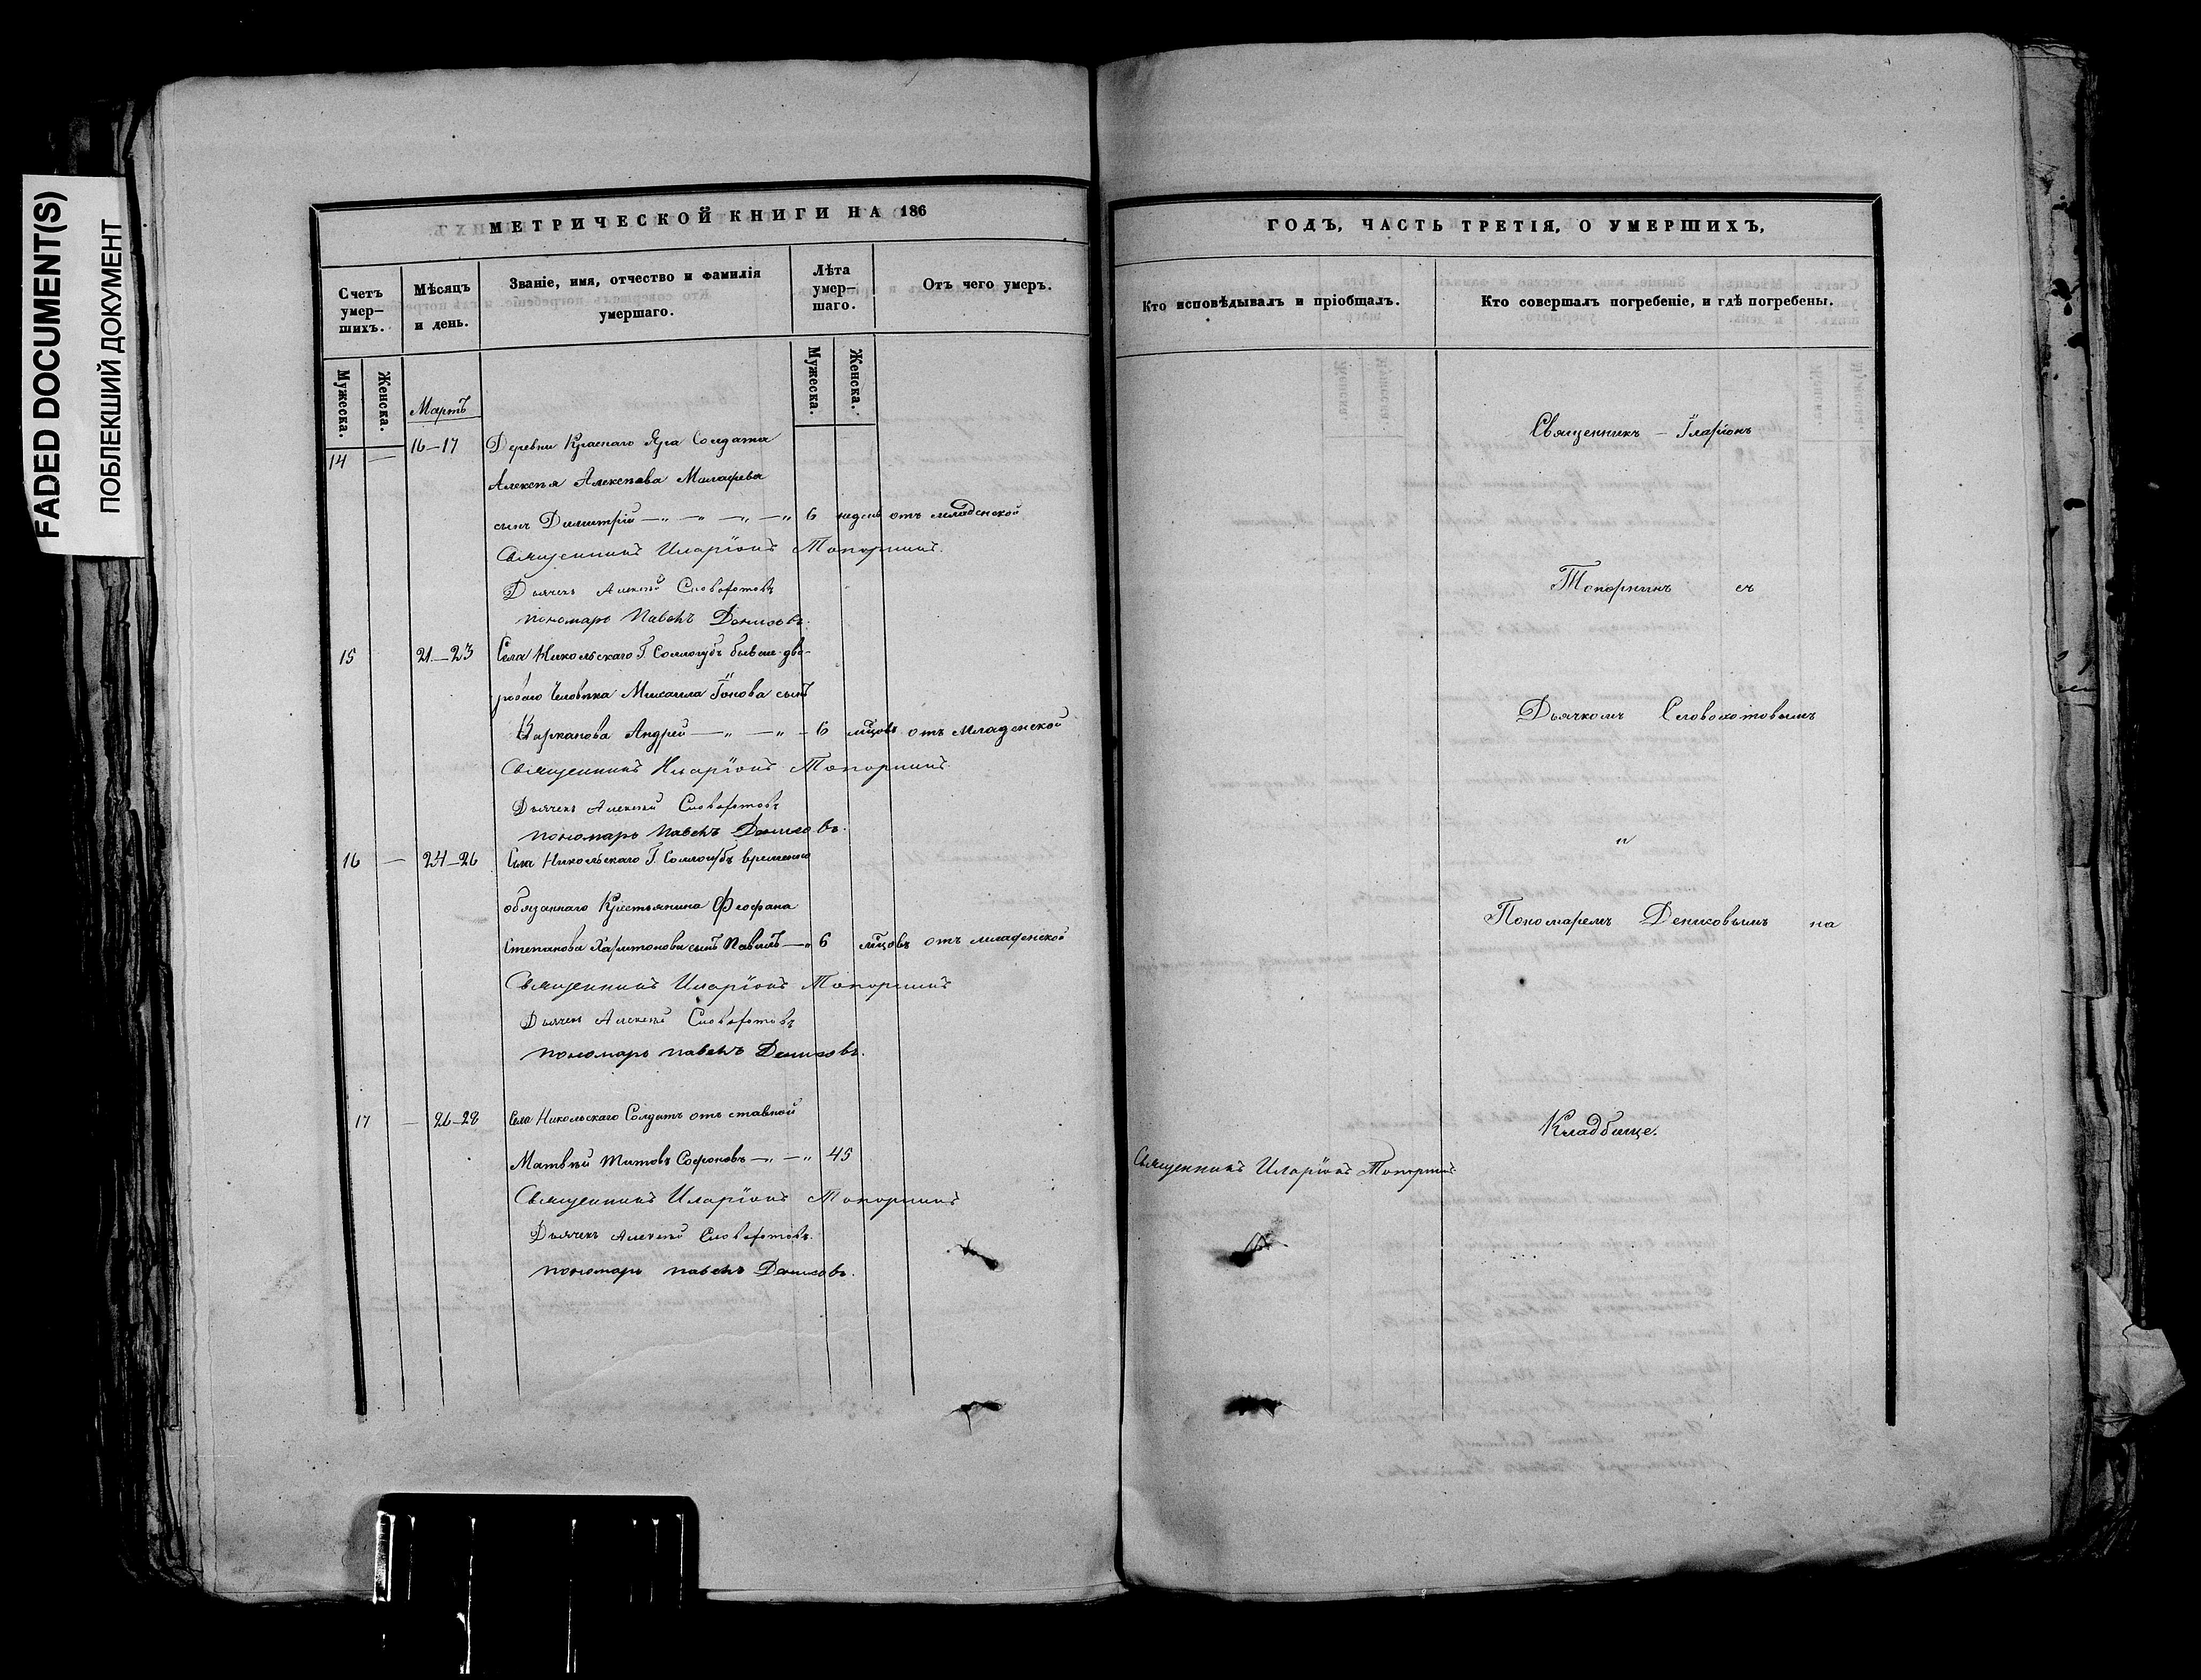 FADED DOCUMENT(S)
ПОБЛЕКШИЙ ДОКУМЕНТ
МЕТРИЧЕСКОЙ КНИГИ НА 186
Счетъ умер–шихъ.
Мѣсяцъ и день.
Званіе, имя, отчество и фамилія умершаго.
Лѣта умер–шаго.
Отъ чего умеръ.
Мужеска.
Женска.
Мужеска.
Женска.
Мартъ
14 — 16–17 Деревни Краснаго Яра Солдата
Алексѣя Алексѣева Малафѣева
сынъ Димитрій — „ — „ — „ — „ 6 недель отъ младенской
Священникъ Иларіонъ Топорнинъ.
Дьячекъ Алексѣй Словохотовъ
пономарь Павелъ Дениковъ.
15 21–23 Села Никольскаго Г. Соллогубъ бывш. дво-
роваго Человѣка Михаила Іонова сынъ
Андрей — „ — „ – 6 мѣсцовъ отъ Младенской
Священникъ Иларіонъ Топорнинъ.
Дьячекъ Алексѣй Словохотовъ
пономарь Павелъ Дениковъ.
16 — 24–26 Села Никольскаго Г. Соллогубъ временно
обязаннаго Крестьянина Феофана
Степанова Харитонова сынъ Павелъ — „ 6 мѣсцовъ отъ младенской
Священникъ Иларіонъ Топорнинъ
Дьячекъ Алексѣй Словохотовъ
пономарь павелъ Дениковъ.
17 — 26–28 Села Никольскаго Солдатъ отъ ставной
Матвѣй Титовъ Софоновъ — „ — „ 45
Священникъ Иларіонъ Топорнинъ
Дьячекъ Алексѣй Словохотовъ.
пономарь павелъ Дениковъ.
ГОДЪ, ЧАСТЬ ТРЕТІЯ, О УМЕРШИХЪ,
Кто исповѣдывалъ и пріобщалъ.
Кто совершалъ погребеніе, и гдѣ погребены.
Священникъ – Іларіонъ
Топорнинъ съ
Дьячкомъ Словохотовымъ
и
Пономаремъ Дениковымъ на
Кладбище.
Священникъ Иларіонъ Топорнинъ